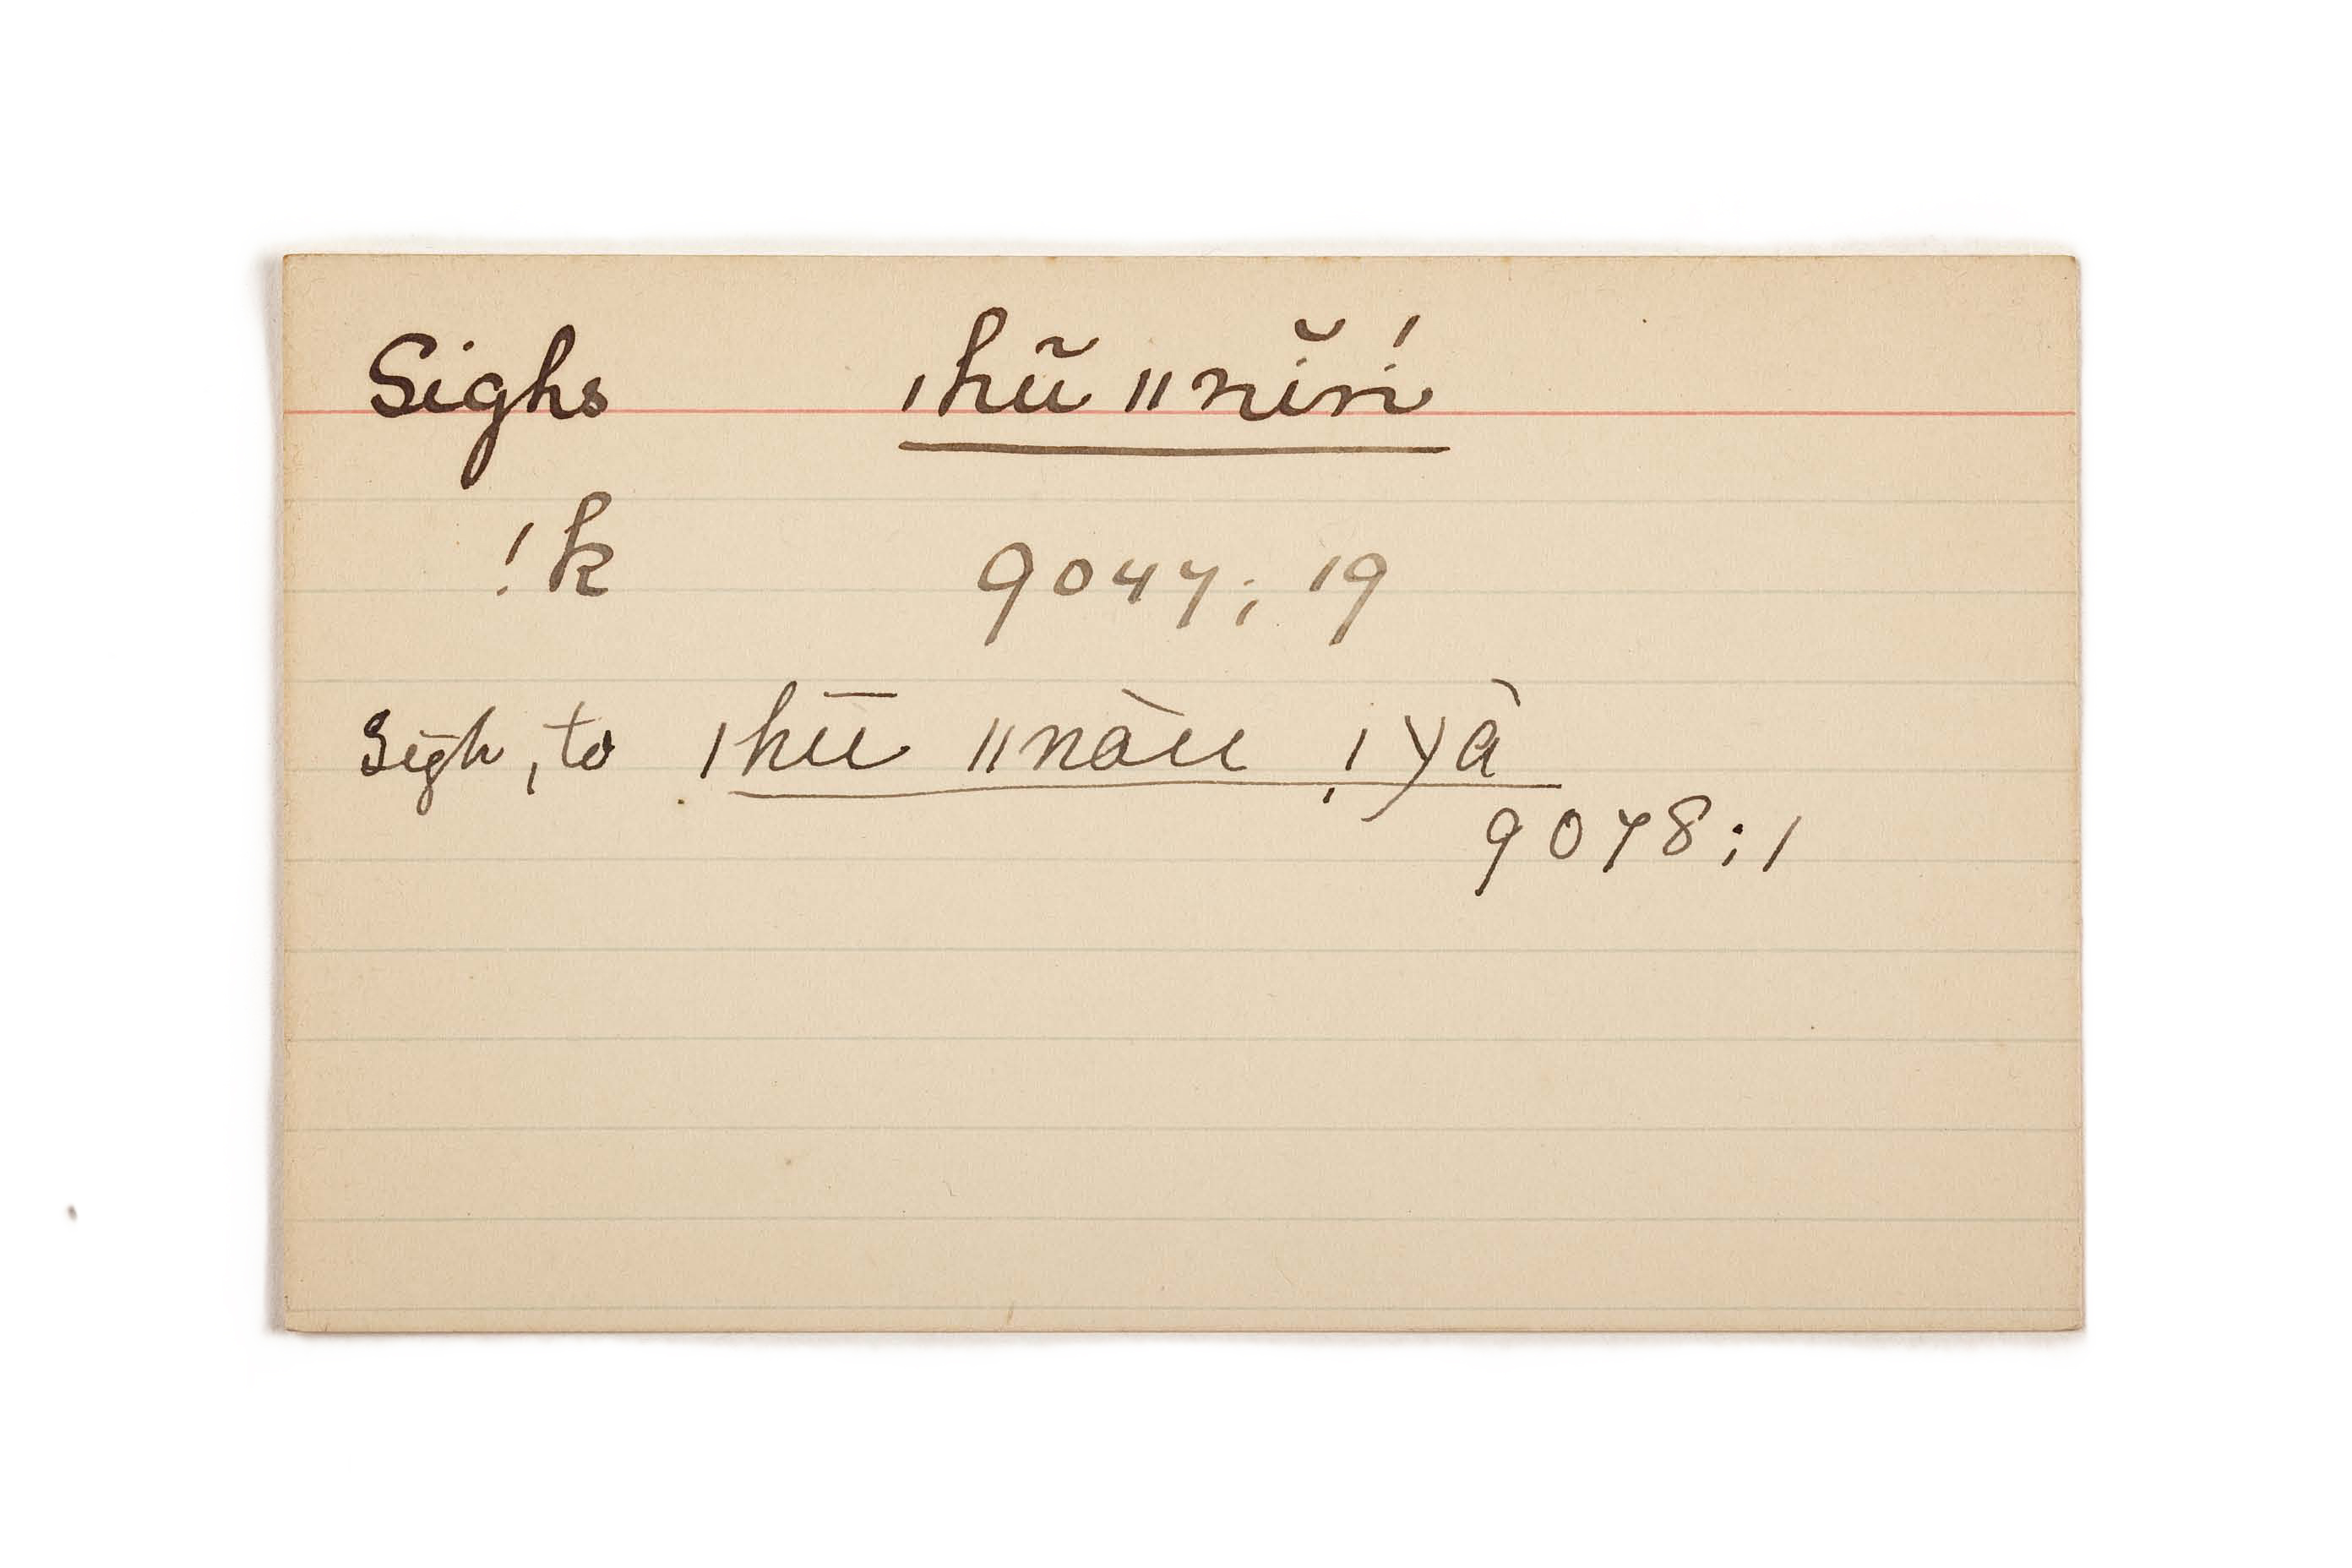 Sighs ǀhŭ ǁnĭrí
!k 9047; 19
Sigh, to ǀhū ǁnàu ǀyà
9078; 1